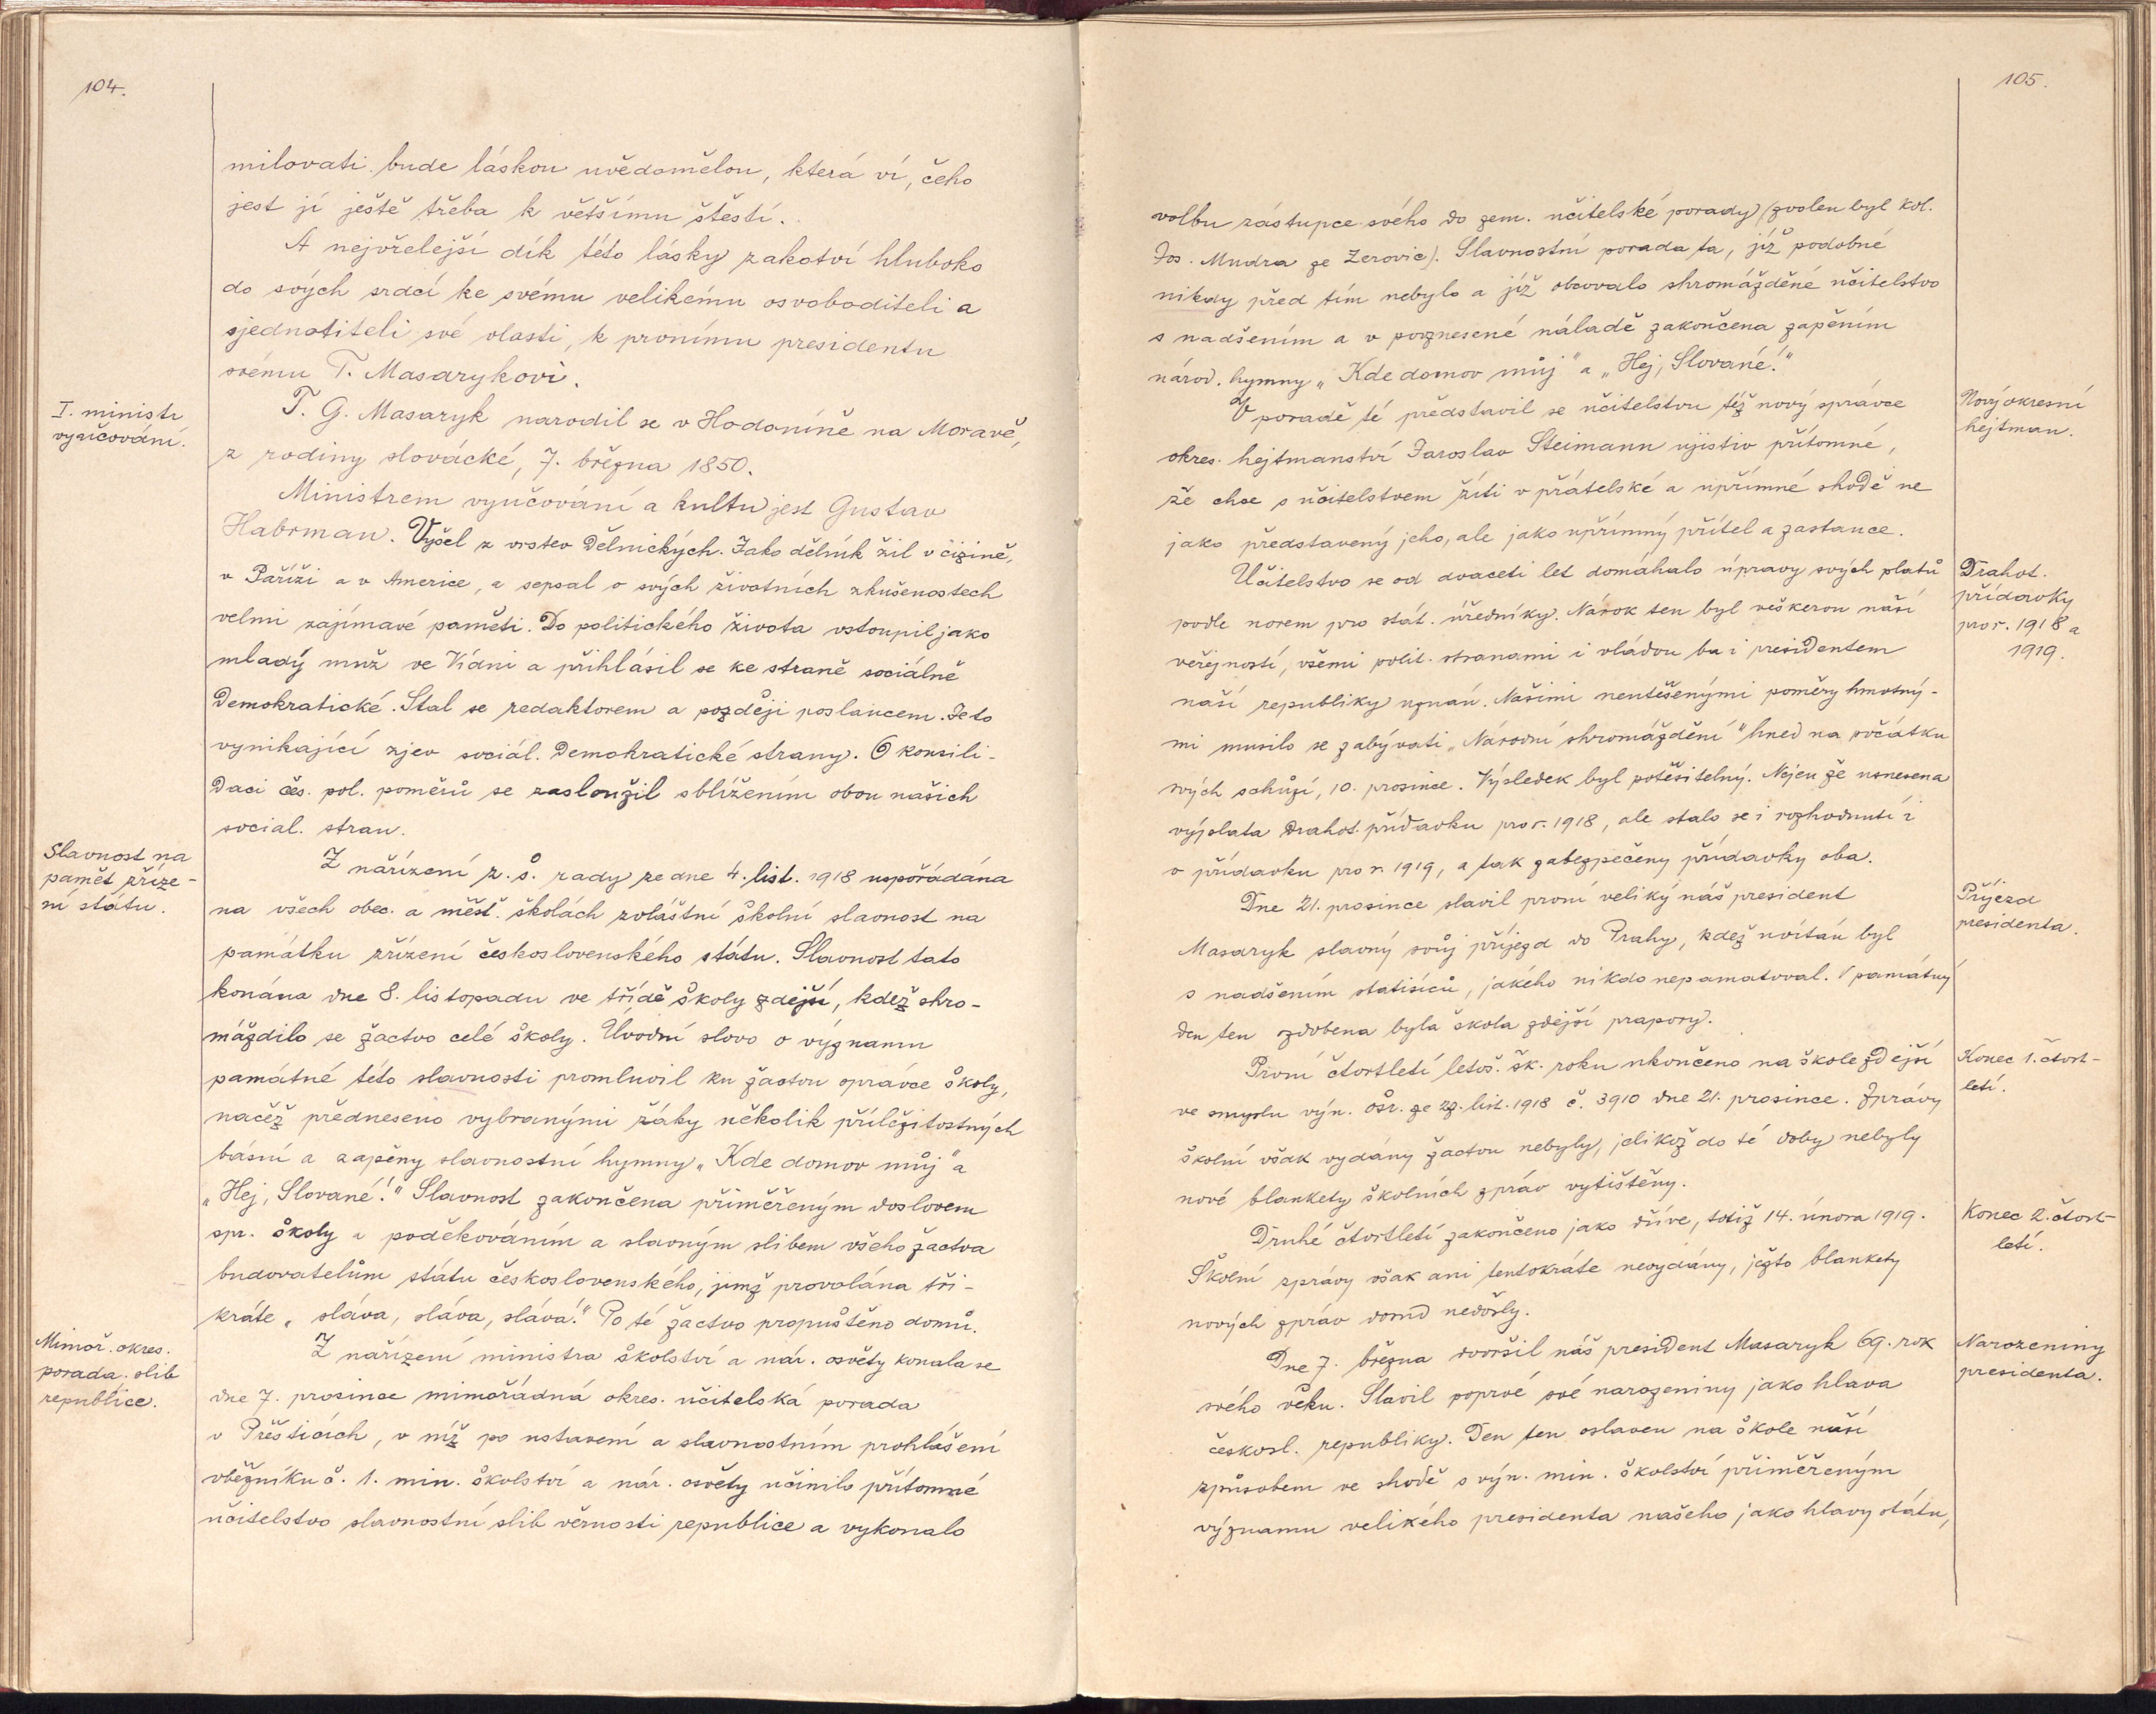 104.
milovati bude láskou uvědomělou, která ví, čeho
jest jí ještě třeba k většímu štěstí.
A nejvřelejší dík této lásky zakotví hluboko
do svých srdcí ke svému velikému osvoboditeli a
sjednotiteli své vlasti, k prvnímu presidentu
svému T. Masarykovi.
I. ministr
vyučování.
T. G. Masaryk narodil se v Hodoníně na Moravě,
z rodiny slovácké, 7. března 1850.
Ministrem vyučování a kultu jest Gustav
Habrman. Vyšel z vrstev dělnických. Jako dělník žil v cizině,
v Paříži a v Americe, a sepsal o svých životních zkušenostech
velmi zajímavé paměti. Do politického života vstoupil jako
mladý muž ve Vídni a přihlásil se ke straně sociálně
demokratické. Stal se redaktorem a později poslancem. Je to
vynikající zjev sociál. demokratické strany. O konsili-
daci čes. pol. poměrů se zasloužil sblížením obou našich
social. stran.
Slavnost na
paměť zříze-
ní státu.
Z nařízení z. š. rady ze dne 4. list. 1918 uspořádána
na všech obec. a měšť. školách zvláštní školní slavnost na
památku zřízení československého státu. Slavnost tato
konána dne 8. listopadu ve třídě školy zdejší, kdež shro-
máždilo se žactvo celé školy. Úvodní slovo o významu
památné této slavnosti promluvil ku žactvu správce školy,
načež předneseno vybranými žáky několik příležitostných
básní a zapěny slavnostní hymny „Kde domov můj" a
„Hej, Slované!" Slavnost zakončena přiměřeným doslovem
spr. školy a poděkováním a slavným slibem všeho žactva
budovatelům státu československého, jimž provolána tři-
kráte „sláva, sláva, sláva!" Po té žactvo propuštěno domů.
Mimoř. okres.
porada. slib
republice.
Z nařízení ministra školství a nár. osvěty konala se
dne 7. prosince mimořádná okres. učitelská porada
v Přešticích, v níž po ustavení a slavnostním prohlášení
oběžníku č. 1. min. školství a nár. osvěty učinilo přítomné
učitelstvo slavnostní slib věrnosti republice a vykonalo
105.
volbu zástupce svého do zem. učitelské porady (zvolen byl kol.
Jos. Mudra ze Zerovic). Slavnostní porada ta, jíž podobné
nikdy před tím nebylo a jíž obcovalo shromážděné učitelstvo
s nadšením a v povznesené náladě zakončena zapěním
národ. hymny „Kde domov můj" a „Hej, Slované!"
Nový okresní
hejtman.
V poradě té představil se učitelstvu též nový správce
okres. hejtmanství Jaroslav Steimann ujistiv přítomné,
že chce s učitelstvem žíti v přátelské a upřímné shodě ne
jako představený jeho, ale jako upřímný přítel a zastance.
Drahot.
přídavky
pro r. 1918 a
1919.
Učitelstvo se od dvaceti let domáhalo úpravy svých platů
podle norem pro stát. úředníky. Nárok ten byl veškerou naší
veřejností, všemi polit. stranami i vládou ba i presidentem
naší republiky uznán. Našimi neutěšenými poměry hmotný-
mi musilo se zabývati „Národní shromáždění" hned na počátku
svých schůzí, 10. prosince. Výsledek byl potěšitelný. Nejen že usnesena
výplata drahot. přídavku pro r. 1918, ale stalo se i rozhodnutí i
o přídavku pro r. 1919, a tak zabezpečeny přídavky oba.
Příjezd
presidenta.
Dne 21. prosince slavil první veliký náš president
Masaryk slavný svůj příjezd do Prahy, kdež uvítán byl
s nadšením statisíců, jakého nikdo nepamatoval. V památný
den ten zdobena byla škola zdejší prapory.
Konec 1. čtvrt-
letí.
První čtvrtletí letoš. šk. roku ukončeno na škole zdejší
ve smyslu výn. ošr. ze 29. list. 1918 č. 3910 dne 21. prosince. Zprávy
školní však vydány žactvu nebyly, jelikož do té doby nebyly
nové blankety školních zpráv vytištěny.
Konec 2. čtvrt-
letí.
Druhé čtvrtletí zakončeno jako dříve, totiž 14. února 1919.
Školní zprávy však ani tentokráte nevydány, ježto blankety
nových zpráv posud nedošly.
Narozeniny
presidenta.
Dne 7. března dovršil náš president Masaryk 69. rok
svého věku. Slavil poprvé své narozeniny jako hlava
českosl. republiky. Den ten oslaven na škole naší
způsobem ve shodě s výn. min. školství přiměřeným
významu velikého presidenta našeho jako hlavy státu,